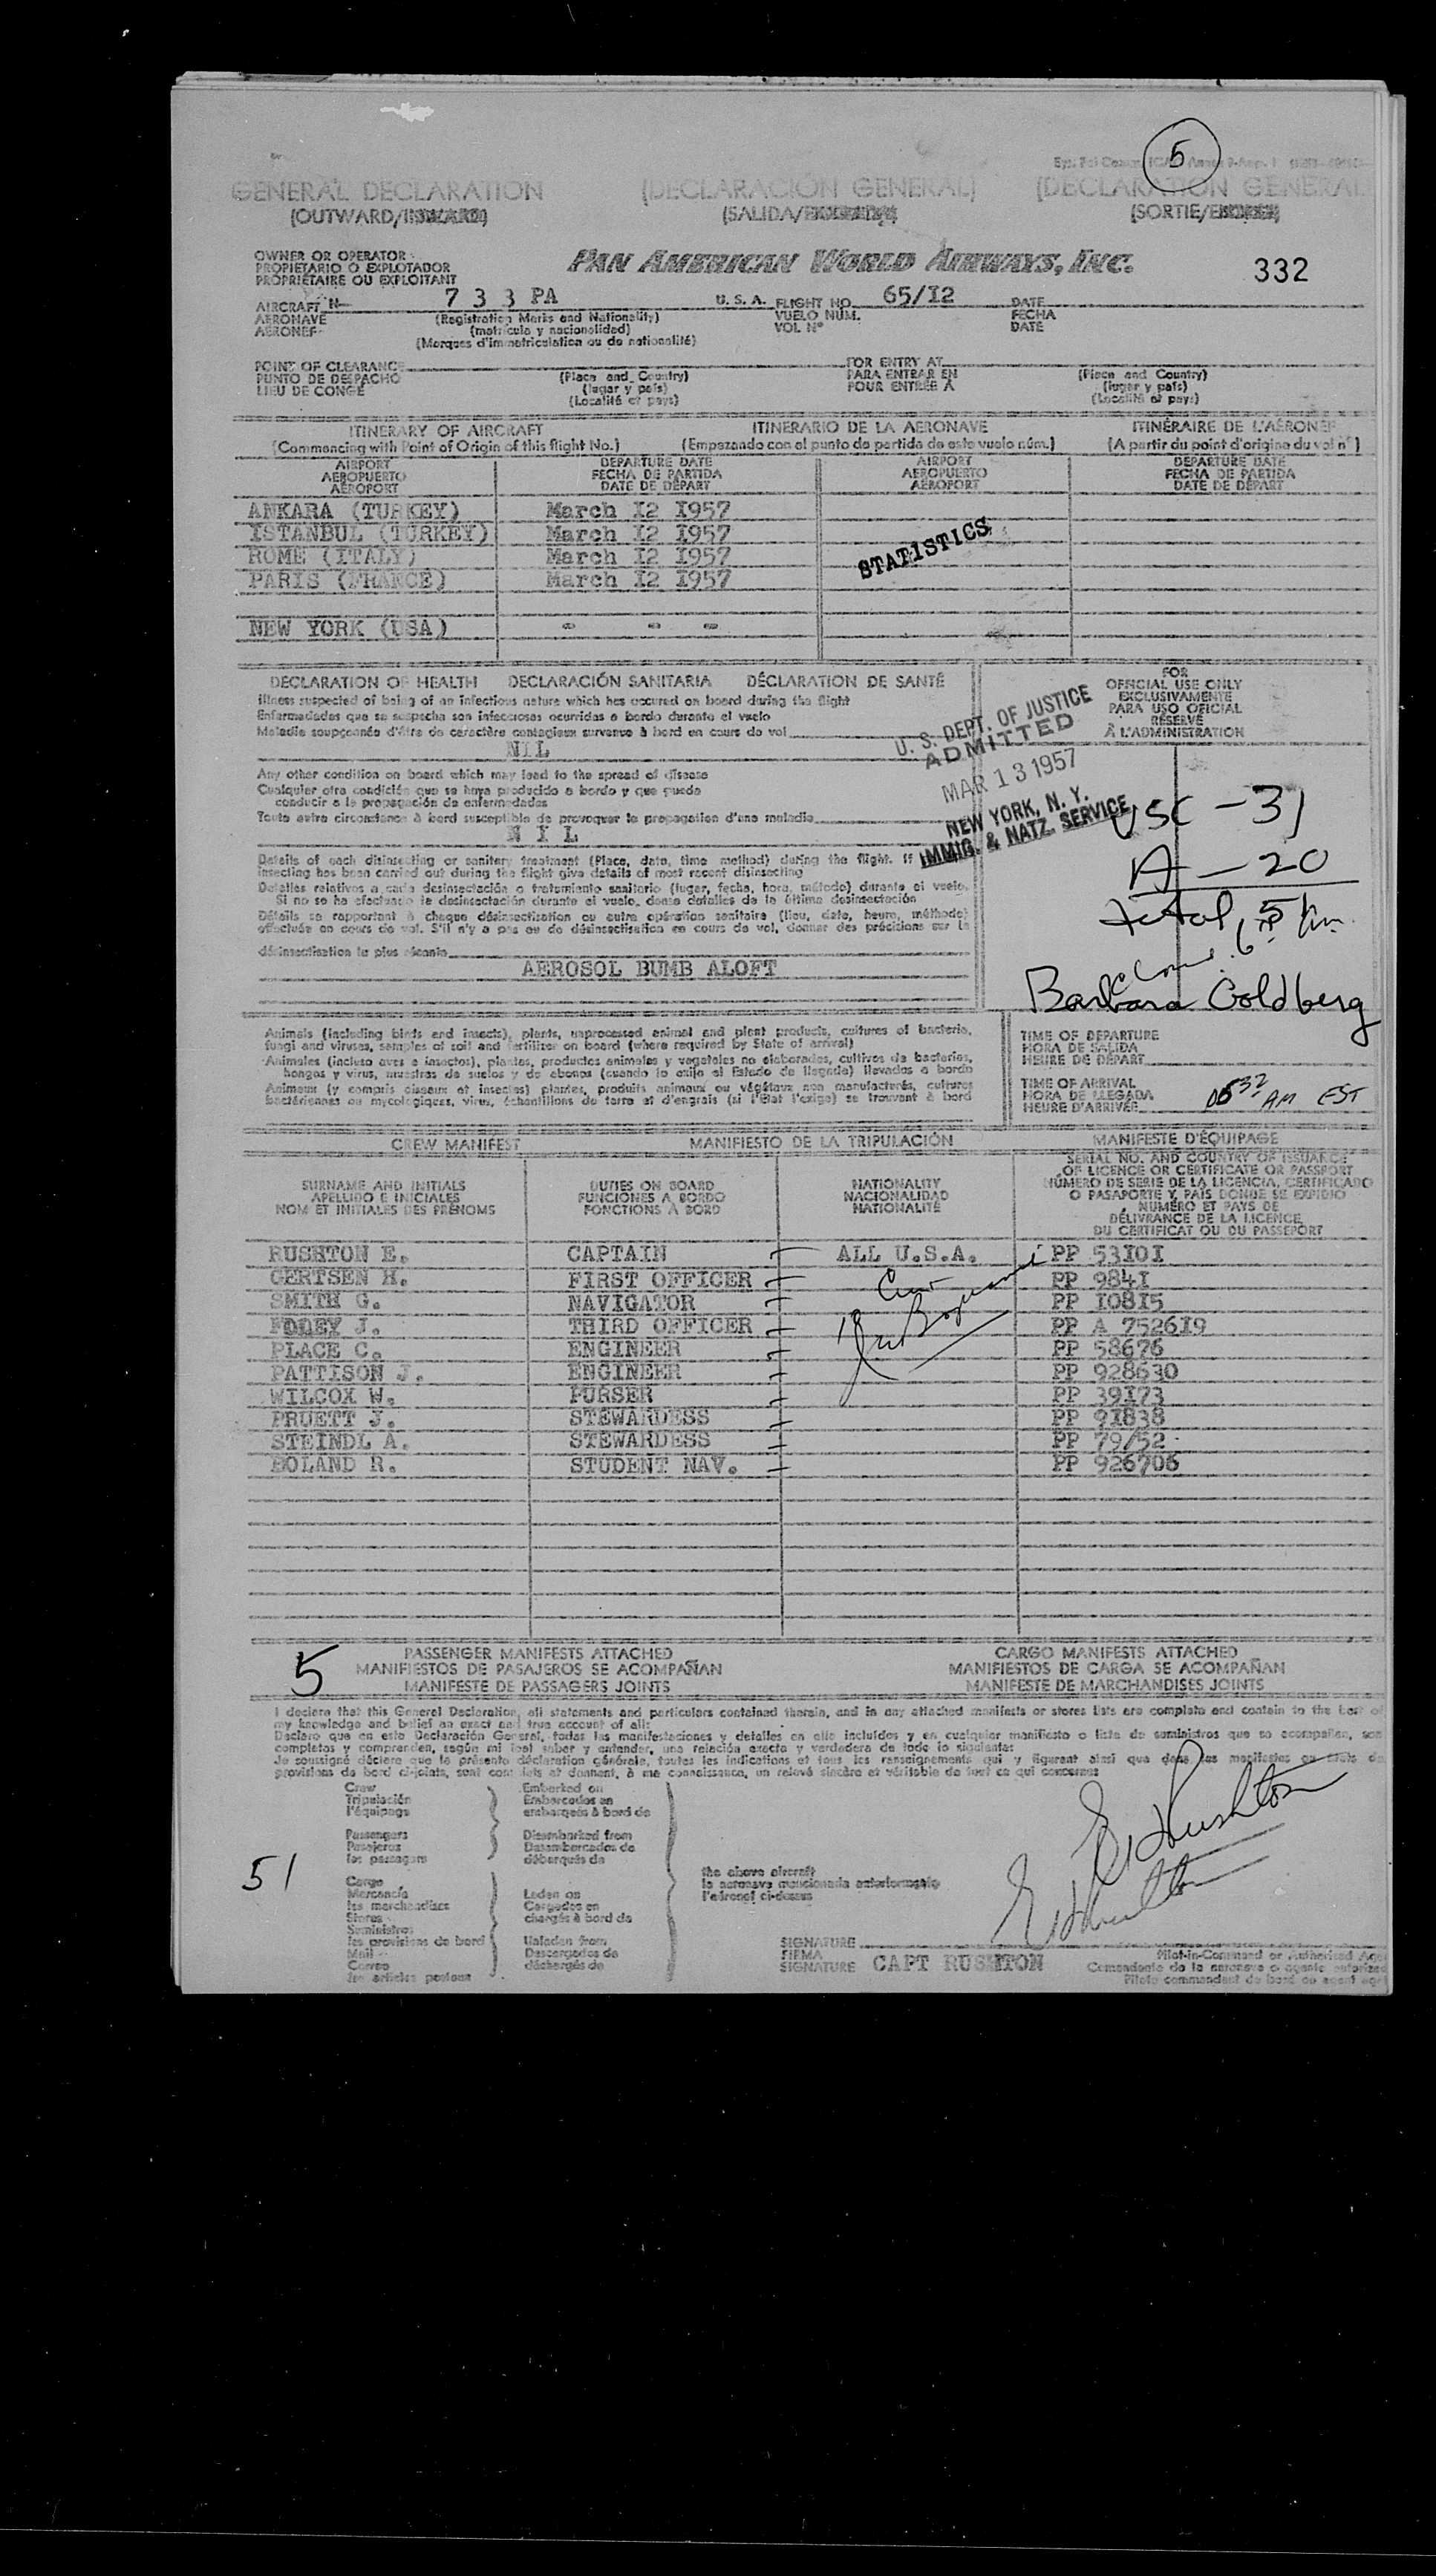 5
GENERAL DECLARATION (DECLARACIÓN GENERAL) (DECLARATION GENERAL
(OUTWARD/INWARD) (SALIDA/ (SORTIE/
OWNER OR OPERATOR
PROPIETARIO O EXPLOTADOR
PROPRIETAIRE OU EXPLOITANT
PAN AMERICAN WORLD AIRWAYS, INC.
332
AIRCRAFT N 7 3 3 PA U. S. A. FLIGHT NO. 65/I2 DATE
AERONAVE (Registration Marks and Nationality) VUELO NÚM. FECHA
AERONEF (matrícula y nacionalidad) VOL Nº DATE
(Marques d'immatriculation ou de nationalité)
POINT OF CLEARANCE FOR ENTRY AT
PUNTO DE DESPACHO (Place and Country) PARA ENTRAR EN (Place and Country)
LIEU DE CONGÉ (lugar y país) POUR ENTRÉE À (lugar y país)
(Localité et pays) (Localité et pays)
ITINERARY OF AIRCRAFT ITINERARIO DE LA AERONAVE ITINÉRAIRE DE L'AÉRONEF
(Commencing with Point of Origin of this flight No.) (Empezando con el punto de partida de este vuelo núm.) (A partir du point d'origine du vol nº)
AIRPORT DEPARTURE DATE AIRPORT DEPARTURE DATE
AEROPUERTO FECHA DE PARTIDA AEROPUERTO FECHA DE PARTIDA
AÉROPORT DATE DE DÉPART AÉROPORT DATE DE DÉPART
ANKARA (TURKEY) March I2 I957
ISTANBUL (TURKEY) March I2 I957
ROME (ITALY) March I2 I957
PARIS (FRANCE) March I2 I957
STATISTICS
NEW YORK (USA) - - -
DECLARATION OF HEALTH DECLARACIÓN SANITARIA DÉCLARATION DE SANTÉ
FOR
OFFICIAL USE ONLY
EXCLUSIVAMENTE
PARA USO OFICIAL
RÉSERVÉ
À L'ADMINISTRATION
Illness suspected of being of an infectious nature which has occured on board during the flight
Enfermedades que se sospecha son infecciosas ocurridas a bordo durante el vuelo
Maladie soupçonnée d'être de caractère contagieux survenue à bord en cours de vol
NIL
U. S. DEPT. OF JUSTICE
ADMITTED
MAR 13 1957
NEW YORK, N. Y.
IMMIG. & NATZ. SERVICE
Any other condition on board which may lead to the spread of disease
Cualquier otra condición que se haya producido a bordo y que pueda
conducir a la propagación de enfermedades
Toute autre circonstance à bord susceptible de provoquer la propagation d'une maladie
N I L
USC - 31
A - 20
total
Barbara Goldberg
Details of each disinsecting or sanitary treatment (Place, date, time method) during the flight. If
insecting has been carried out during the flight give details of most recent disinsecting
Detalles relativos a cada desinsectación o tratamiento sanitario (lugar, fecha, hora, método) durante el vuelo.
Si no se ha efectuado la desinsectación durante el vuelo, dense detalles de la última desinsectación
Détails se rapportant à chaque désinsectisation ou autre opération sanitaire (lieu, date, heure, méthode)
effectuée en cours de vol. S'il n'y a pas eu de désinsectisation en cours de vol, donner des précisions sur la
désinsectisation la plus récente
AEROSOL BUMB ALOFT
Animals (including birds and insects), plants, unprocessed animal and plant products, cultures of bacteria,
fungi and viruses, samples of soil and fertilizer on board (where required by State of arrival)
Animales (incluso aves e insectos), plantas, productos animales y vegetales no elaborados, cultivos de bacterias,
hongos y virus, muestras de suelos y de abonos (cuando lo exija el Estado de llegada) llevados a bordo
Animaux (y compris oiseaux et insectes) plantes, produits animaux ou végétaux non manufacturés, cultures
bactériennes ou mycologiques, virus, échantillons de terre et d'engrais (si l'État l'exige) se trouvant à bord
TIME OF DEPARTURE
HORA DE SALIDA
HEURE DE DÉPART
TIME OF ARRIVAL
HORA DE LLEGADA
HEURE D'ARRIVÉE
32 AM EST
CREW MANIFEST MANIFIESTO DE LA TRIPULACIÓN MANIFESTE D'ÉQUIPAGE
SURNAME AND INITIALS DUTIES ON BOARD NATIONALITY
APELLIDO E INICIALES FUNCIONES A BORDO NACIONALIDAD
NOM ET INITIALES DES PRÉNOMS FONCTIONS À BORD NATIONALITÉ
SERIAL NO. AND COUNTRY OF ISSUANCE
OF LICENCE OR CERTIFICATE OR PASSPORT
NÚMERO DE SERIE DE LA LICENCIA, CERTIFICADO
O PASAPORTE Y PAÍS DONDE SE EXPIDIÓ
NUMÉRO ET PAYS DE
DÉLIVRANCE DE LA LICENCE,
DU CERTIFICAT OU DU PASSEPORT
RUSHTON E. CAPTAIN ALL U.S.A. PP 53I0I
GERTSEN H. FIRST OFFICER PP 984I
SMITH G. NAVIGATOR PP I08I5
J. THIRD OFFICER PP A 7526I9
PLACE C. ENGINEER PP 58676
PATTISON J. ENGINEER PP 928630
WILCOX W. PURSER PP 39I73
PRUETT J. STEWARDESS PP 9I838
STEINDL A. STEWARDESS PP 79/52
BOLAND R. STUDENT NAV. PP 926706
5
PASSENGER MANIFESTS ATTACHED CARGO MANIFESTS ATTACHED
MANIFIESTOS DE PASAJEROS SE ACOMPAÑAN MANIFIESTOS DE CARGA SE ACOMPAÑAN
MANIFESTE DE PASSAGERS JOINTS MANIFESTE DE MARCHANDISES JOINTS
I declare that this General Declaration, all statements and particulars contained therein, and in any attached manifests or stores lists are complete and contain to the best of
my knowledge and belief an exact and true account of all:
Declaro que en esta Declaración General, todas las manifestaciones y detalles en ella incluídos y en cualquier manifiesto o lista de suministros que se acompañen, son
completas y comprenden, según mi leal saber y entender, una relación exacta y verdadera de todo lo siguiente:
Je soussigné déclare que la présente déclaration générale, toutes les indications et tous les renseignements qui y figurent ainsi que dans les manifestes ou
provisions de bord ci-joints, sont complets et donnent, à ma connaissance, un relevé sincère et véritable de tout ce qui concerne:
Crew Embarked on
Tripulación Embarcados en
l'équipage embarqués à bord de
Passengers Disembarked from
Pasajeros Desembarcados de
les passagers débarqués de
51
Cargo
Mercancía Laden on
les marchandises Cargados en
Stores chargés à bord de
Suministros
les provisions de bord Unladen from
Mail Descargados de
Correo déchargés de
les articles postaux
the above aircraft
la aeronave mencionada anteriormente
l'aéronef ci-dessus
E Rushton
E Rushton
SIGNATURE
FIRMA
SIGNATURE CAPT RUSHTON
Pilot-in-Command or Authorised
Comandante de la aeronave o agente
Pilote commandant de bord ou agent